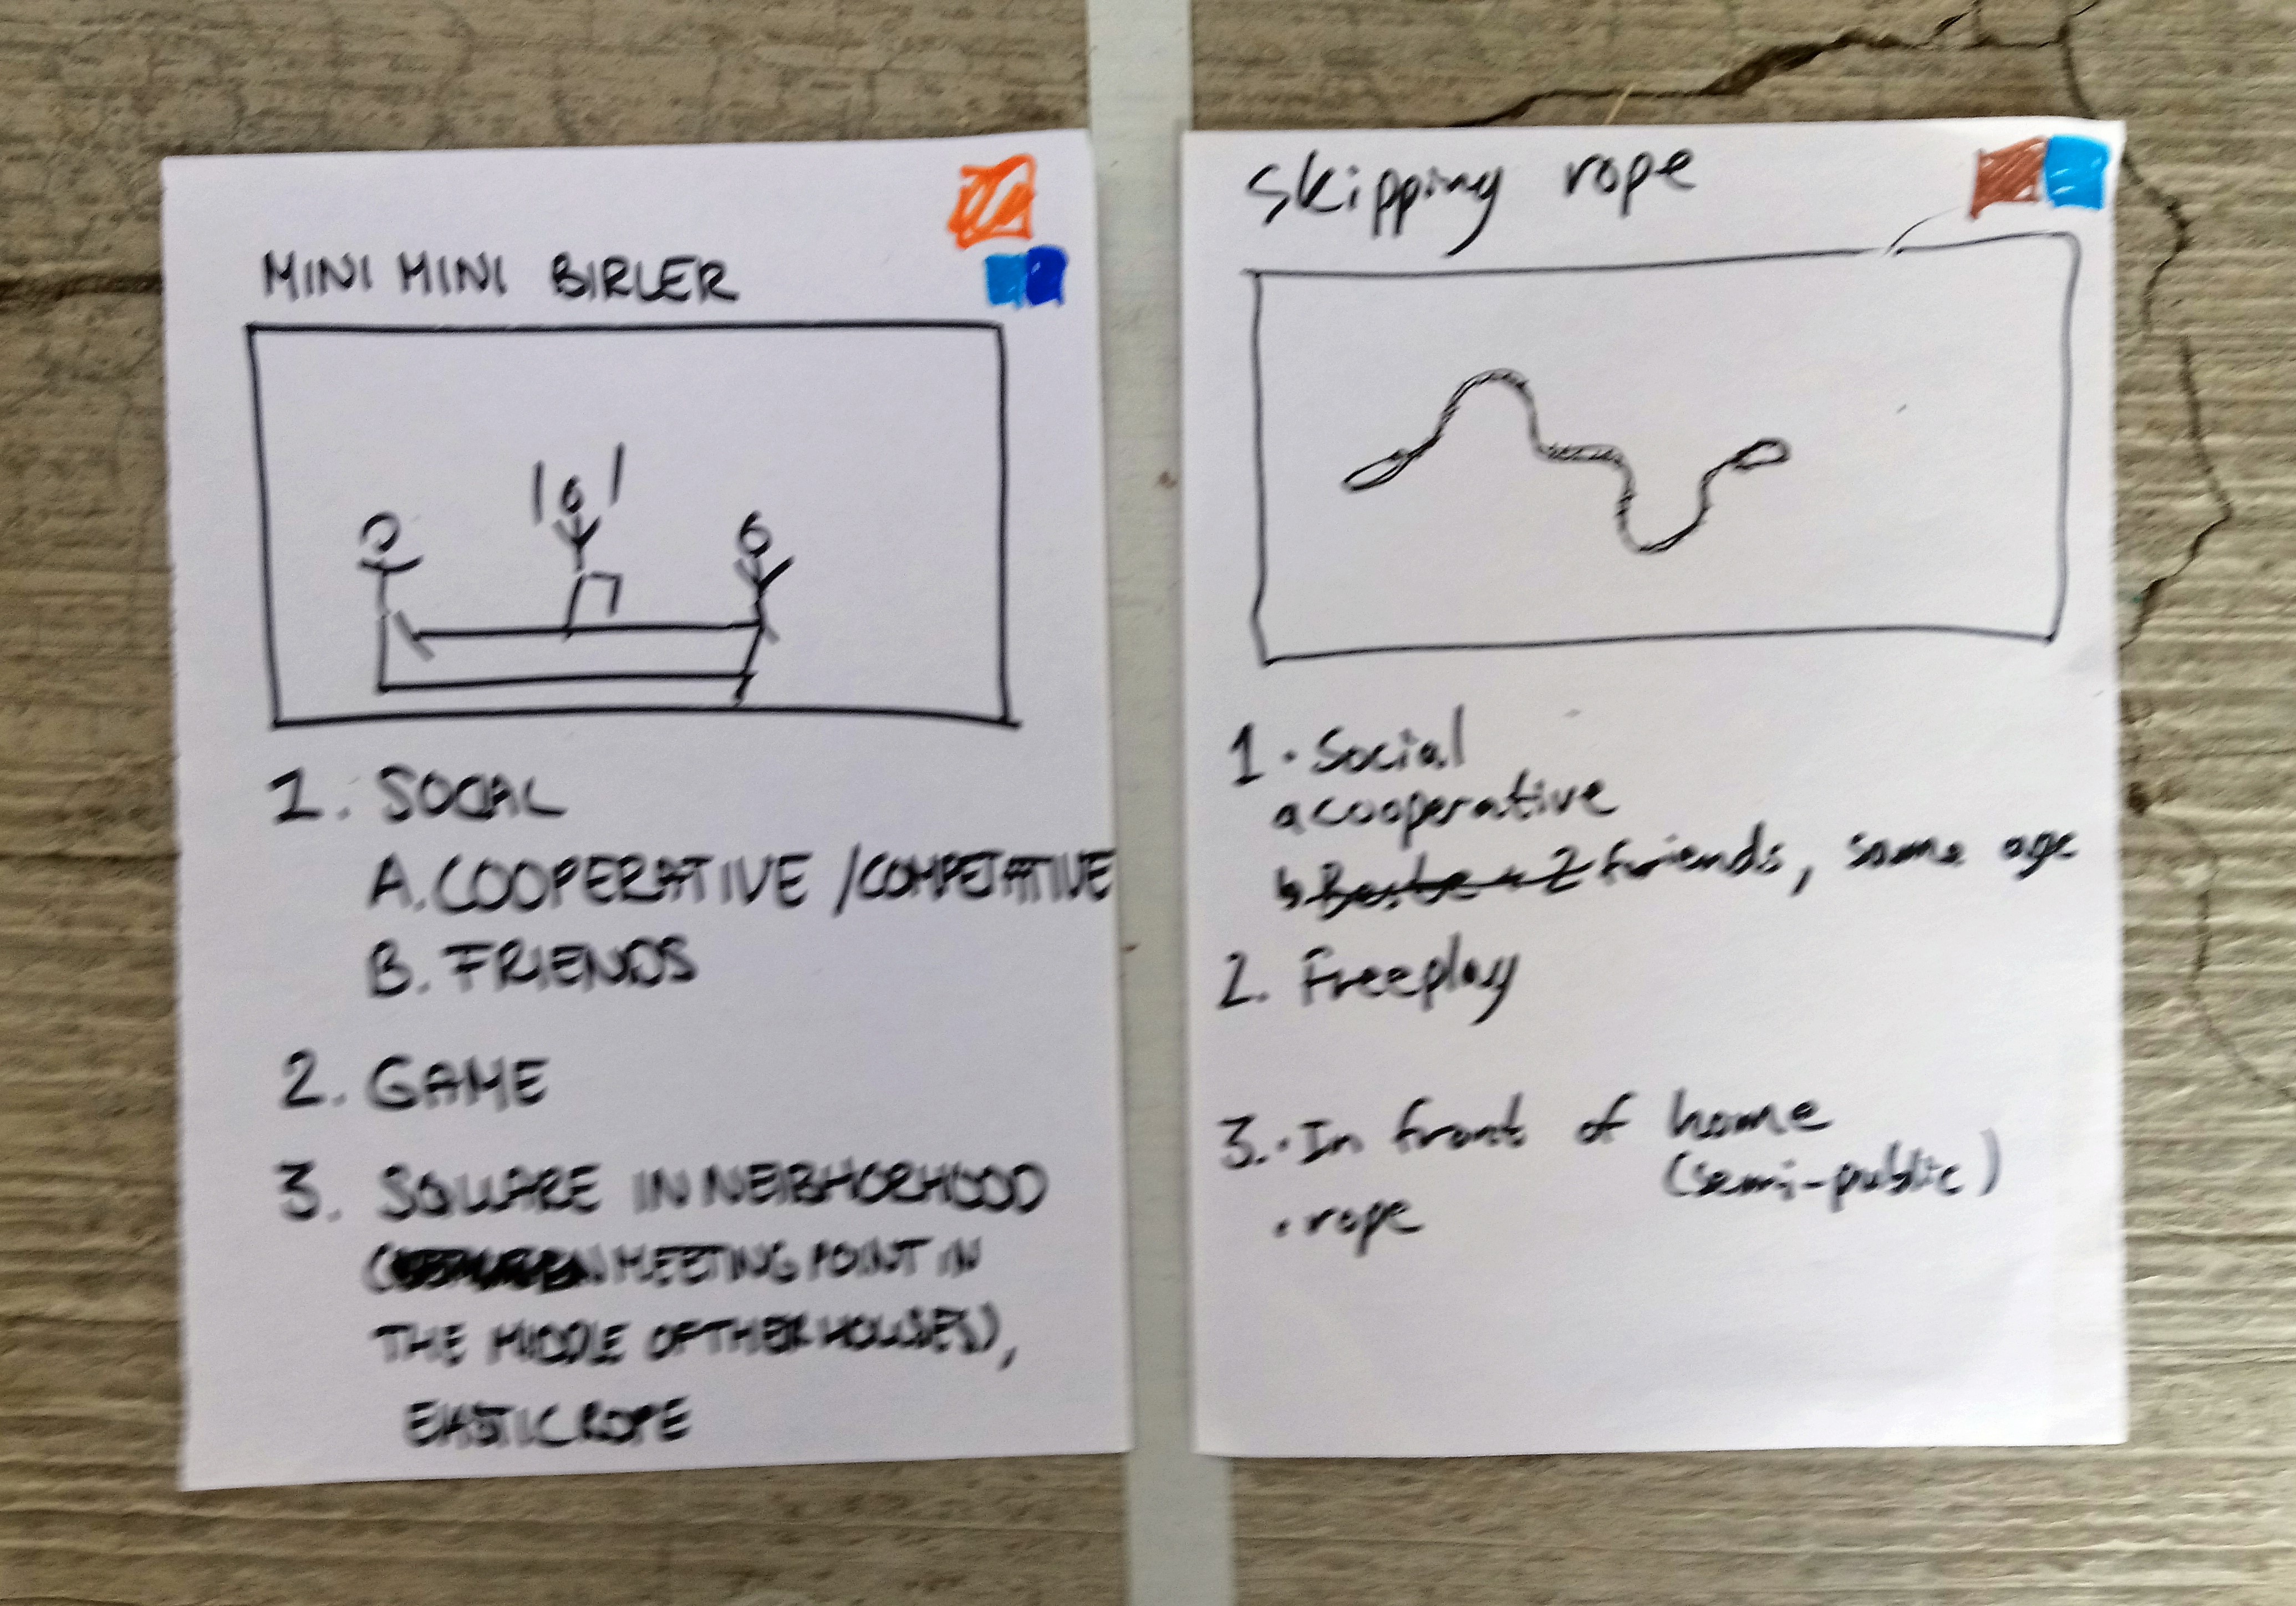 MINI MINI BIRLER
1. SOCIAL
A. COOPERATIVE / COMPETATIVE
B. FRIENDS
2. GAME
3. SQUARE IN NEIBHORHOOD
( MEETING POINT IN
THE MIDDLE OF THEIR HOUSES),
ELASTIC ROPE
Skipping rope
1. Social
a cooperative
b friends, same age
2. Freeplay
3. · In front of home
(semi-public)
· rope